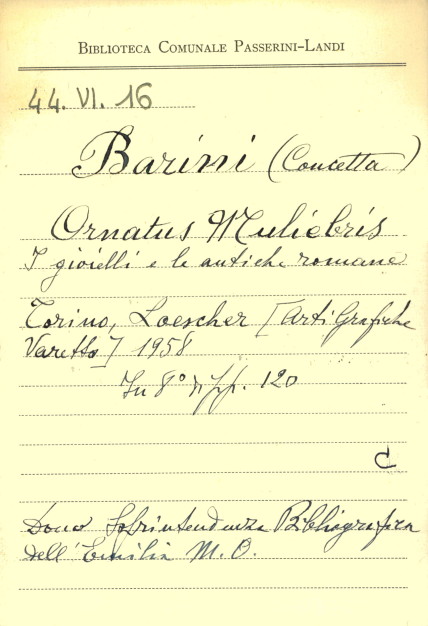 BIBLIOTECA COMUNALE PASSERINI-LANDI
44. VI. 16
Barini (Concetta)
Ornatus Muliebris
I gioielli e le antiche romane
Torino, Loescher [Arti Grafiche
Varetto] 1958
In 8° pp. 120
C
Dono Soprintendenza Bibliografica
dell'Emilia N. O.